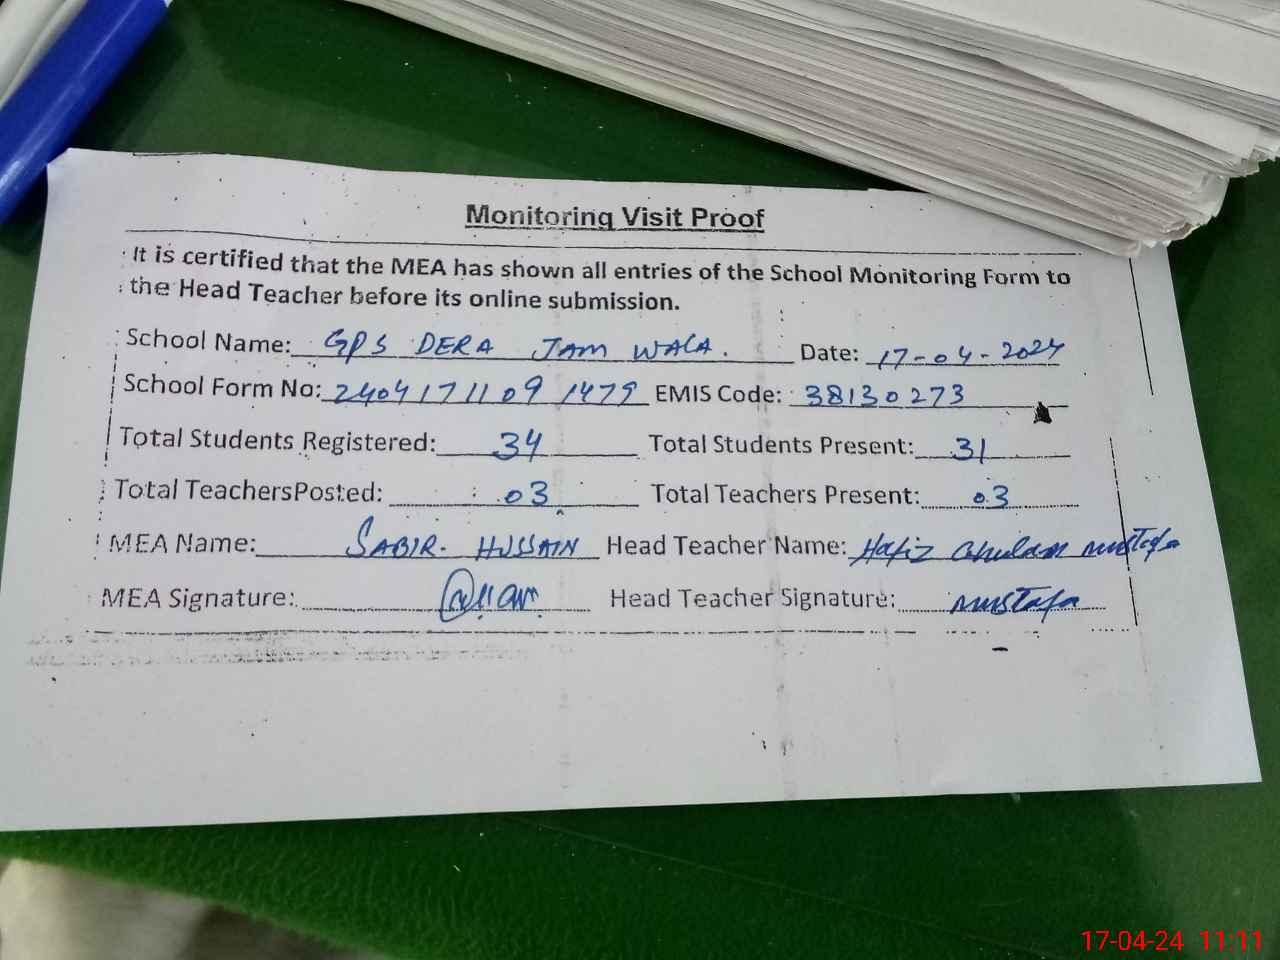 Monitoring Visit Proof
It is certified that the MEA has shown all entries of the School Monitoring Form to
the Head Teacher before its online submission.
School Name: GPS DERA JAM WALA. Date: 17-04-2024
School Form No: 24041711091479 EMIS Code: 38130273
Total Students Registered: 34 Total Students Present: 31
Total TeachersPosted: 03 Total Teachers Present: 03
MEA Name: SABIR. HUSSAIN Head Teacher Name: Hafiz Ghulam Mustafa
MEA Signature: Head Teacher Signature: Mustafa
17-04-24 11:11